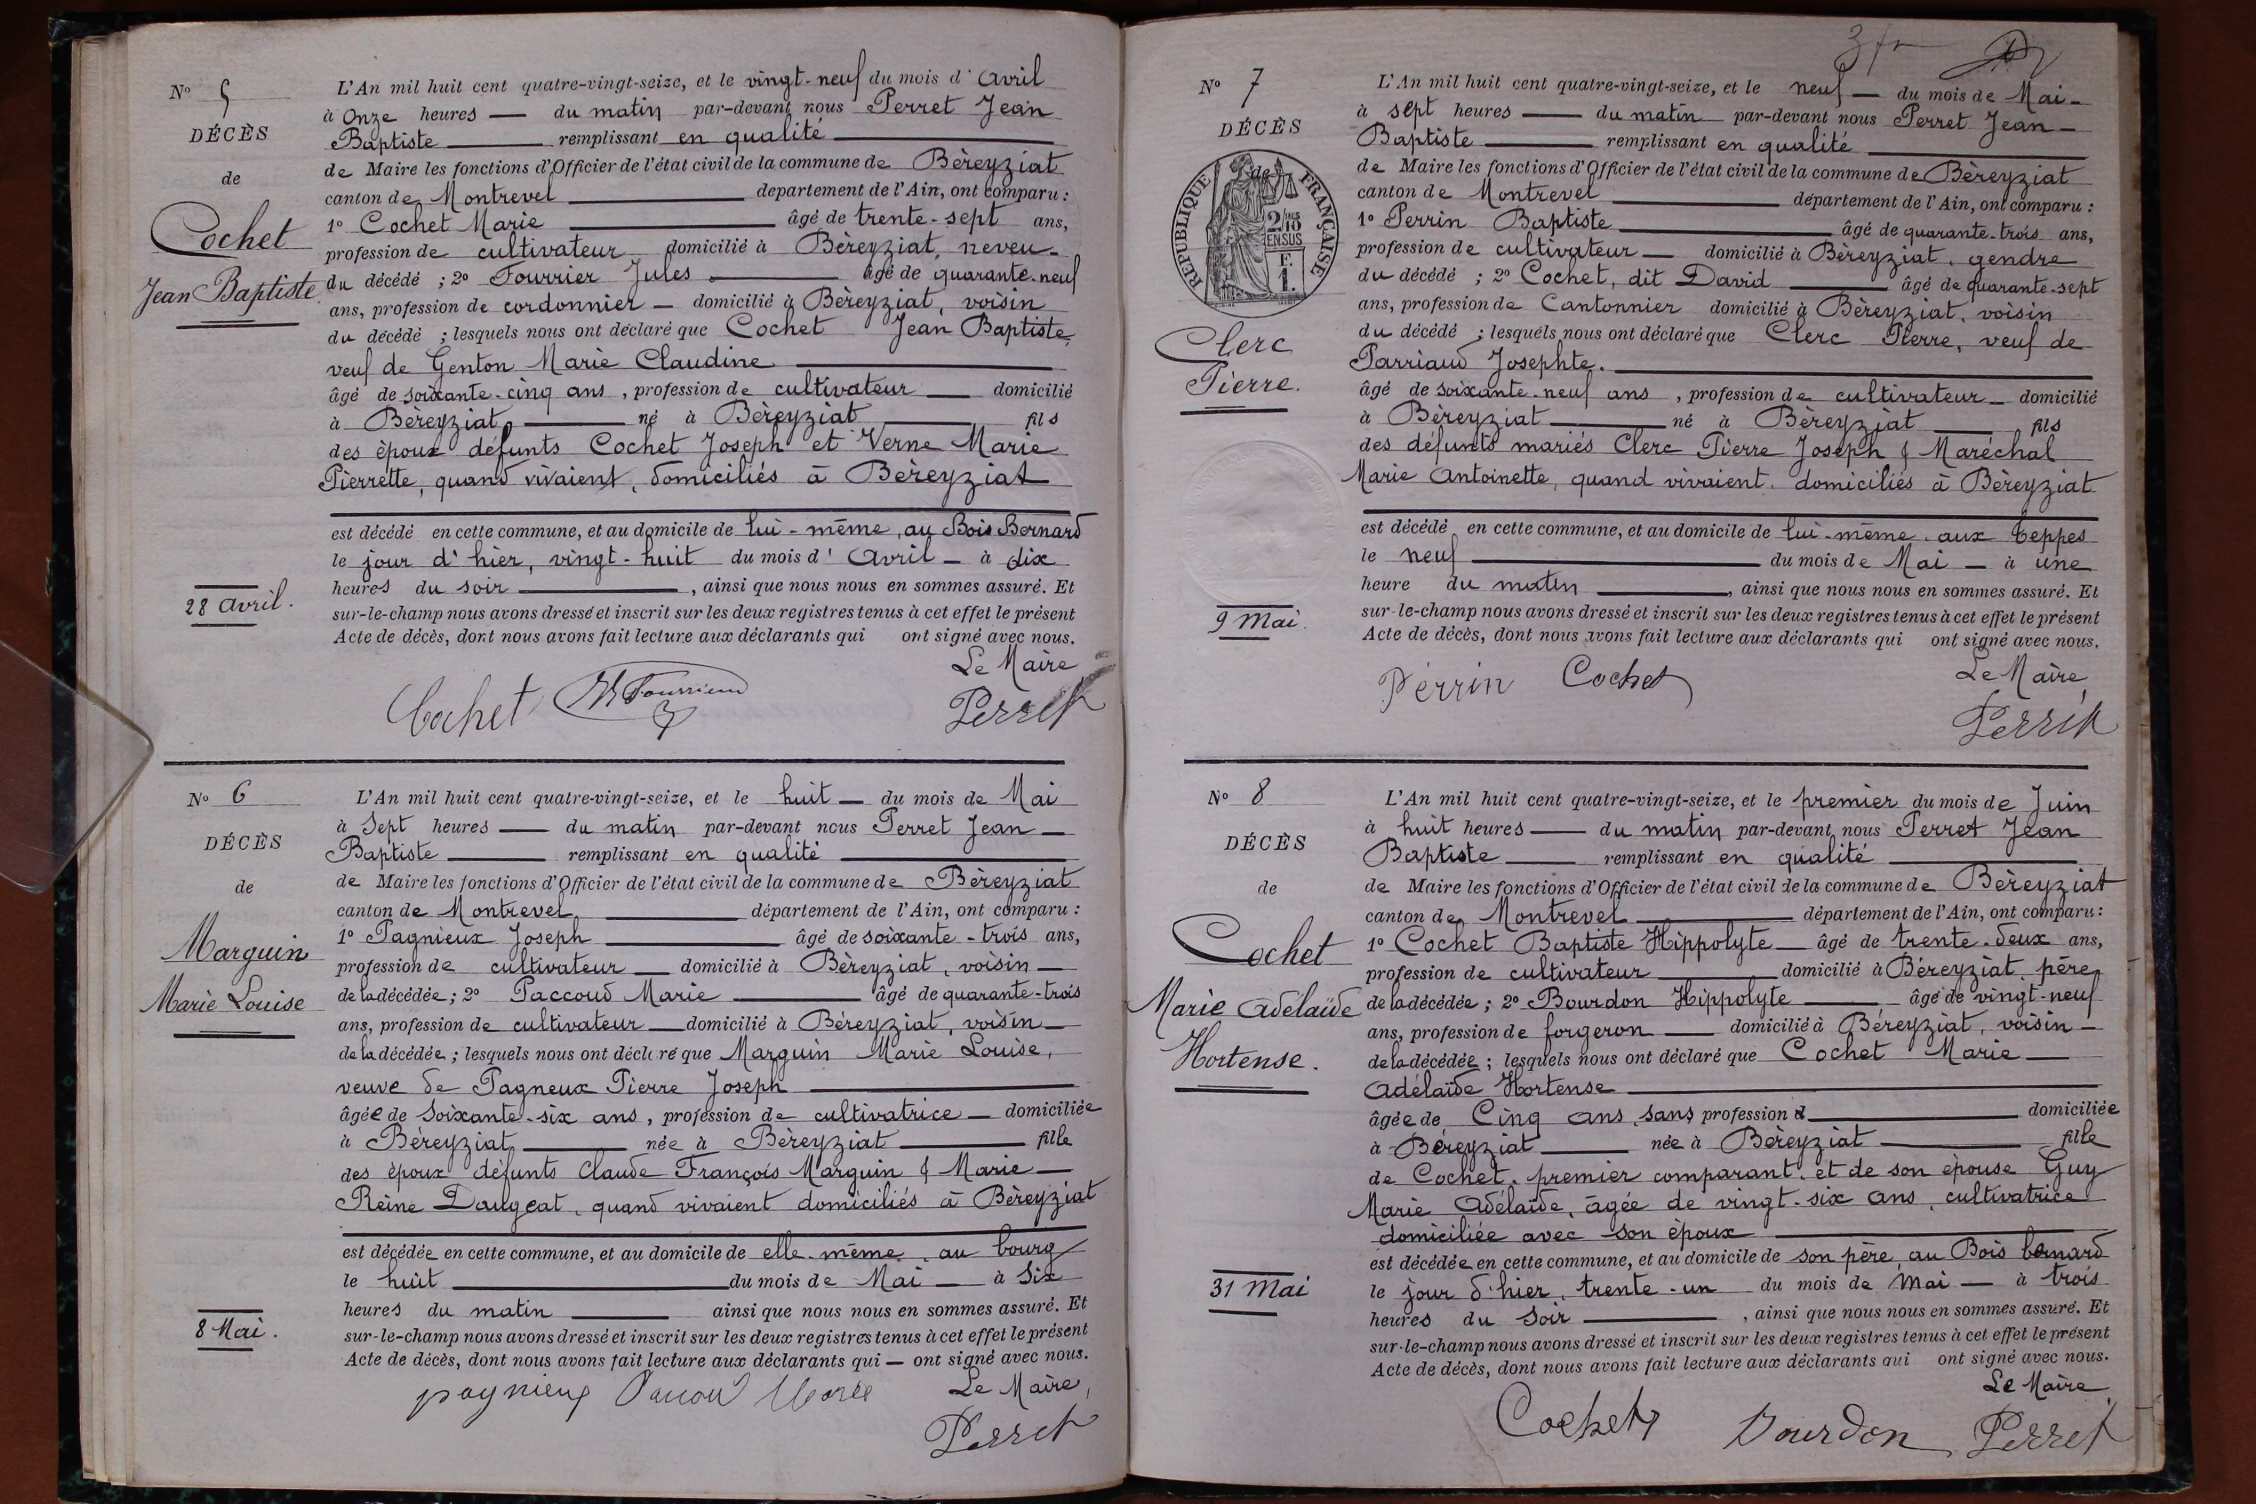 Nº 5
DÉCÈS
de
Cochet
Jean Baptiste
28 avril.
L'An mil huit cent quatre-vingt-seize, et le vingt-neuf du mois d' avril
à onze heures — du matin par-devant nous Perret Jean
Baptiste — remplissant en qualité
de Maire les fonctions d'Officier de l'état civil de la commune de Bèreyziat
canton de Montrevel — département de l'Ain, ont comparu :
1º Cochet Marie — âgé de trente-sept ans,
profession de cultivateur domicilié à Bèreyziat, neveu
du décédé ; 2º Fourrier Jules — âgé de quarante-neuf
ans, profession de cordonnier — domicilié à Bèreyziat, voisin
du décédé ; lesquels nous ont déclaré que Cochet Jean Baptiste,
veuf de Genton Marie Claudine
âgé de soixante-cinq ans, profession de cultivateur — domicilié
à Bèreyziat — né à Bèreyziat — fils
des époux défunts Cochet Joseph et Verne Marie
Pierrette, quand vivaient, domiciliés à Bèreyziat
est décédé en cette commune, et au domicile de lui-même, au Bois Bernard
le jour d'hier, vingt-huit du mois d' avril — à dix
heures du soir —, ainsi que nous nous en sommes assuré. Et
sur-le-champ nous avons dressé et inscrit sur les deux registres tenus à cet effet le présent
Acte de décès, dont nous avons fait lecture aux déclarants qui ont signé avec nous.
Le Maire
Cochet Fourrier Perret
Nº 6
DÉCÈS
de
Marguin
Marie Louise
8 Mai.
L'An mil huit cent quatre-vingt-seize, et le huit — du mois de Mai
à Sept heures — du matin par-devant nous Perret Jean —
Baptiste — remplissant en qualité
de Maire les fonctions d'Officier de l'état civil de la commune de Bèreyziat
canton de Montrevel — département de l'Ain, ont comparu :
1º Pagnieux Joseph — âgé de soixante-trois ans,
profession de cultivateur — domicilié à Bèreyziat, voisin —
de la décédée ; 2º Paccoud Marie — âgé de quarante-trois
ans, profession de cultivateur — domicilié à Béreyziat, voisin —
de la décédée ; lesquels nous ont déclaré que Marguin Marie Louise,
veuve de Pagneux Pierre Joseph
âgée de soixante-six ans, profession de cultivatrice — domiciliée
à Bèreyziat — née à Bèreyziat — fille
des époux défunts Claude François Marguin & Marie —
Reine Daugeat, quand vivaient domiciliés à Bèreyziat
est décédée en cette commune, et au domicile de elle-même, au bourg
le huit — du mois de Mai — à Six
heures du matin — ainsi que nous nous en sommes assuré. Et
sur-le-champ nous avons dressé et inscrit sur les deux registres tenus à cet effet le présent
Acte de décès, dont nous avons fait lecture aux déclarants qui — ont signé avec nous.
Le Maire,
pagnieux Paccoud Marie Perret
3 fr
Nº 7
DÉCÈS
de
RÉPUBLIQUE FRANÇAISE
2/10 EN SUS
F.
1.
Clerc
Pierre.
9 Mai.
L'An mil huit cent quatre-vingt-seize, et le neuf — du mois de Mai —
à sept heures — du matin par-devant nous Perret Jean —
Baptiste — remplissant en qualité
de Maire les fonctions d'Officier de l'état civil de la commune de Bèreyziat
canton de Montrevel — département de l'Ain, ont comparu :
1º Perrin Baptiste — âgé de quarante-trois ans,
profession de cultivateur — domicilié à Bèreyziat, gendre
du décédé ; 2º Cochet, dit David — âgé de quarante-sept
ans, profession de Cantonnier domicilié à Bèreyziat, voisin
du décédé ; lesquels nous ont déclaré que Clerc Pierre, veuf de
Parriaud Josephte.
âgé de soixante-neuf ans, profession de cultivateur — domicilié
à Bèreyziat — né à Bèreyziat — fils
des défunts mariés Clerc Pierre Joseph & Maréchal
Marie Antoinette, quand vivaient, domiciliés à Bèreyziat
est décédé en cette commune, et au domicile de lui-même, aux teppes
le neuf — du mois de Mai — à une
heure du matin —, ainsi que nous nous en sommes assuré. Et
sur-le-champ nous avons dressé et inscrit sur les deux registres tenus à cet effet le présent
Acte de décès, dont nous avons fait lecture aux déclarants qui ont signé avec nous.
Le Maire,
Perrin Cochet Perret
Nº 8
DÉCÈS
de
Cochet
Marie Adélaïde
Hortense.
31 Mai
L'An mil huit cent quatre-vingt-seize, et le premier du mois de Juin
à huit heures — du matin par-devant nous Perret Jean
Baptiste — remplissant en qualité
de Maire les fonctions d'Officier de l'état civil de la commune de Bèreyziat
canton de Montrevel — département de l'Ain, ont comparu :
1º Cochet Baptiste Hippolyte — âgé de trente-deux ans,
profession de cultivateur — domicilié à Béreyziat, père
de la décédée ; 2º Bourdon Hippolyte — âgé de vingt-neuf
ans, profession de forgeron — domicilié à Béreyziat, voisin —
de la décédée ; lesquels nous ont déclaré que Cochet Marie —
Adélaïde Hortense
âgée de Cinq ans, sans profession — domiciliée
à Béreyziat — née à Bèreyziat — fille
de Cochet, premier comparant, et de son épouse Guy
Marie Adélaïde, âgée de vingt-six ans, cultivatrice
domiciliée avec son époux
est décédée en cette commune, et au domicile de son père, au Bois bernard
le jour d'hier, trente-un du mois de Mai — à trois
heures du soir —, ainsi que nous nous en sommes assuré. Et
sur-le-champ nous avons dressé et inscrit sur les deux registres tenus à cet effet le présent
Acte de décès, dont nous avons fait lecture aux déclarants qui ont signé avec nous.
Le Maire
Cochet Bourdon Perret